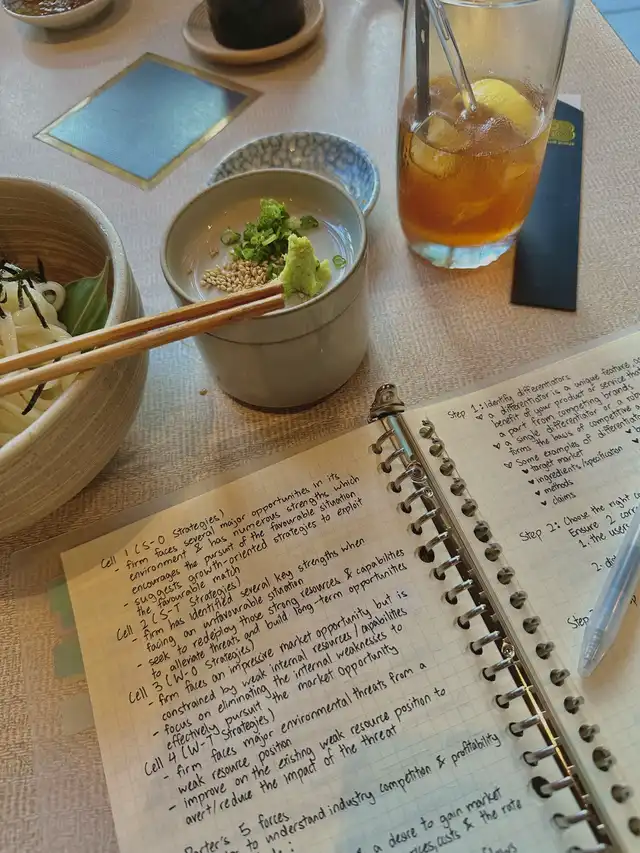 Cell 1 (S-O Strategies)
- firm faces several major opportunities in its
environment & has numerous strengths which
encourages the pursuit of the favourable situation
- suggests growth-oriented strategies to exploit
the favourable match
Cell 2 (S-T Strategies)
- firm has identified several key strengths when
facing an unfavourable situation
- seek to redeploy those strong resources & capabilities
to alleviate threats and build long-term opportunities
Cell 3 (W-O Strategies)
- firm faces an impressive market opportunity but is
constrained by weak internal resources/capabilities
- focus on eliminating the internal weaknesses to
effectively pursuit the market opportunity
Cell 4 (W-T Strategies)
- firm faces major environmental threats from a
weak resource position
- improve on the existing weak resource position to
avert/reduce the impact of the threat
Porter's 5 forces
to understand industry competition & profitability
a desire to gain market
costs & the rate
Step 1: Identify differentiators
a differentiator is a unique feature
benefit of your product or service that
a part from competing brands
a single differentiator or a
forms the basis of competitive
Some examples of
target market
ingredients/specification
methods
claims
Step 2: Choose the right
Ensure 2
1. the
2.